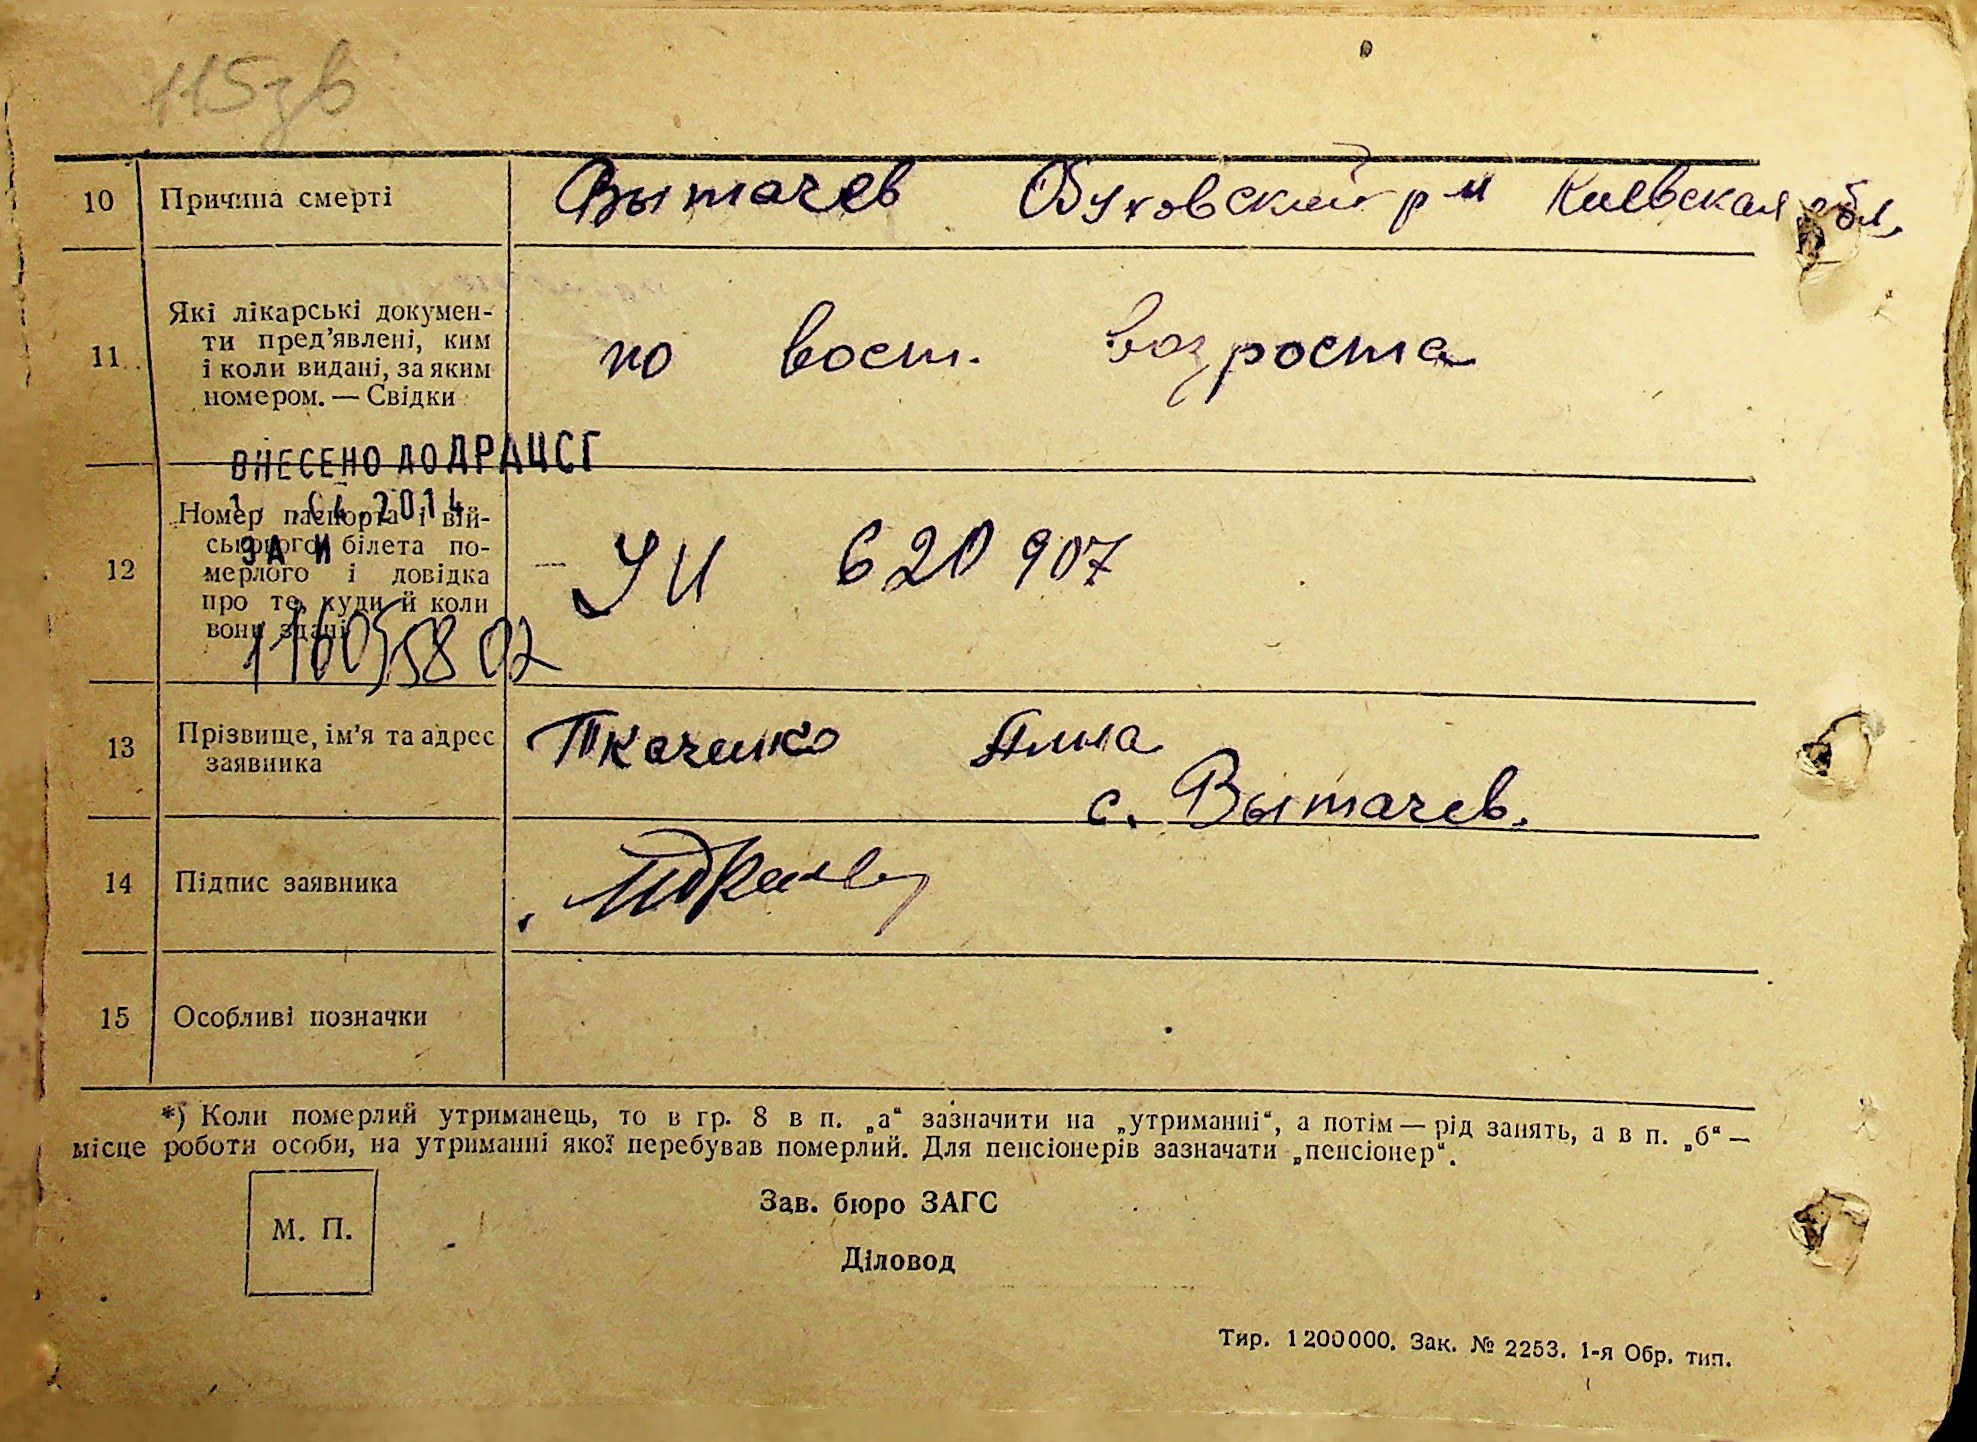 115зв
10 Причина смерті Вытачев Обуховский р-н Киевская обл.
11 Які лікарські докумен-
ти пред'явлені, ким
і коли видані, за яким
номером. — Свідки
по восст. возроста
ВНЕСЕНО ДО ДРАЦСГ
2014
ЗА №
11605802
12 Номер паспорта і вій-
ськового білета по-
мерлого і довідка
про те, куди й коли
вони здані
УИ 620907
13 Прізвище, ім'я та адрес
заявника
Ткаченко Анна
с. Вытачев.
14 Підпис заявника
15 Особливі позначки
*) Коли померлий утриманець, то в гр. 8 в п. „а“ зазначити на „утриманні“, а потім — рід занять, а в п. „б“ —
місце роботи особи, на утриманні якої перебував померлий. Для пенсіонерів зазначати „пенсіонер“.
М. П.
Зав. бюро ЗАГС
Діловод
Тир. 1200000. Зак. № 2253. 1-я Обр. тип.